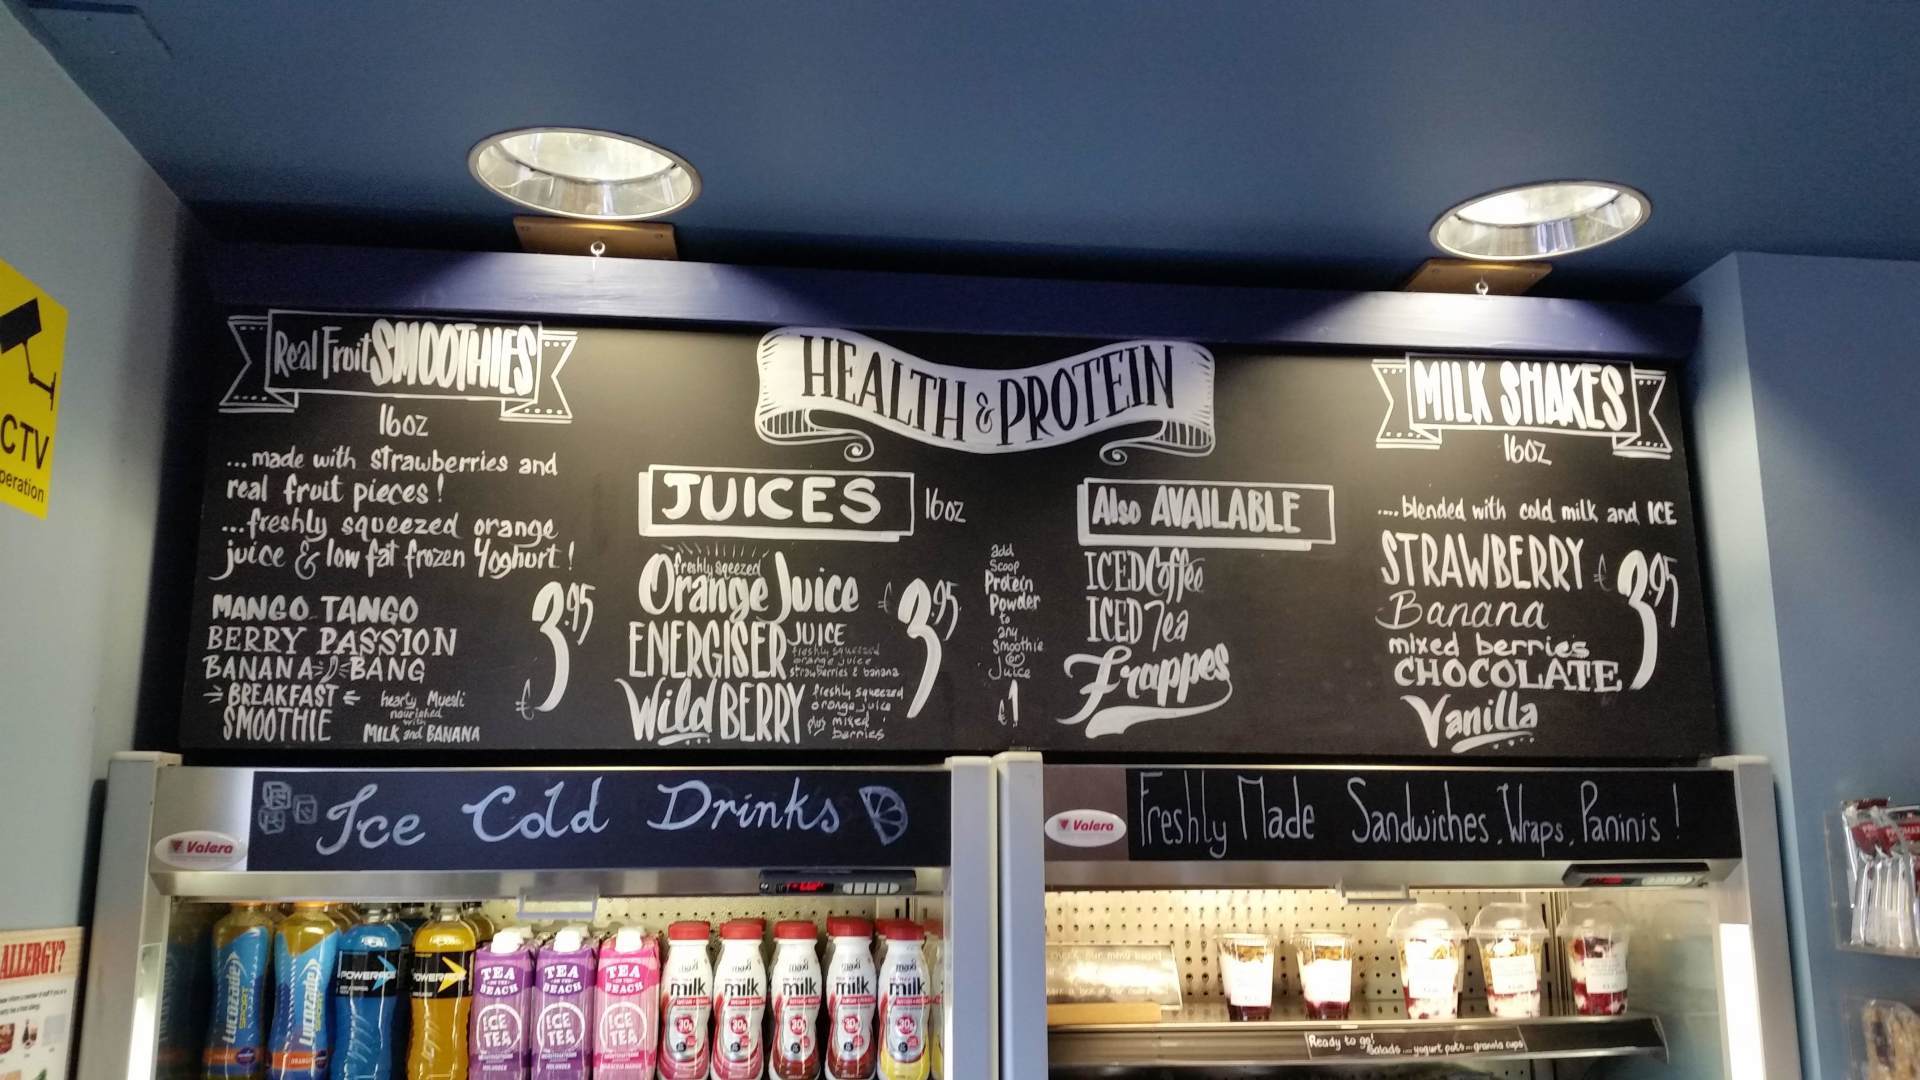 Real Fruit SMOOTHIES
16oz
...made with strawberries and
real fruit pieces!
...freshly squeezed orange
juice & low fat frozen Yoghurt!
MANGO TANGO
BERRY PASSION
BANANA BANG
BREAKFAST
SMOOTHIE
hearty Muesli
nourished
with
MILK and BANANA
€3.95
HEALTH & PROTEIN
JUICES 16oz
freshly sqeezed
Orange Juice
ENERGISER JUICE
freshly squeezed
orange juice
strawberries & banana
Wild BERRY
freshly squeezed
orange juice
plus mixed
berries
€3.95
add
Scoop
Protein
Powder
to
any
Smoothie
or
Juice
€1
Also AVAILABLE
ICED Coffee
ICED Tea
Frappes
MILK SHAKES
16oz
....blended with cold milk and ICE
STRAWBERRY
Banana
mixed berries
CHOCOLATE
Vanilla
€3.95
CTV
peration
Valera
Ice Cold Drinks
Valera
Freshly Made Sandwiches, Wraps, Paninis!
ALLERGY?
LUCOZADE
SPORT
LUCOZADE
SPORT
POWERADE
POWERADE
TEA
ON THE
BEACH
ICE
TEA
TEA
ON THE
BEACH
ICE
TEA
TEA
ON THE
BEACH
ICE
TEA
maxi
milk
30g
maxi
milk
30g
maxi
milk
30g
maxi
milk
30g
maxi
milk
30g
Ready to go!
Salads ... yogurt pots ... granola cups